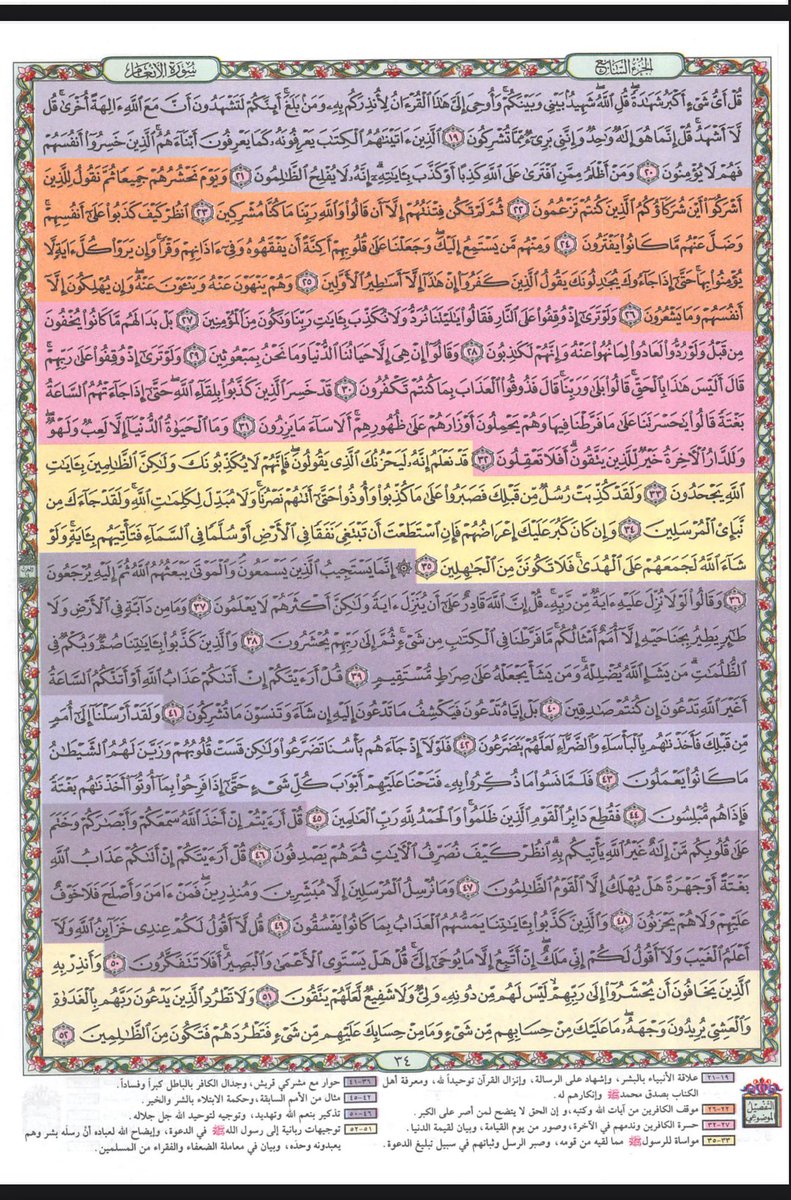 الجزء السابع
سورة الأنعام
قُلْ أَىُّ شَىْءٍ أَكْبَرُ شَهَٰدَةً ۖ قُلِ ٱللَّهُ ۖ شَهِيدٌۢ بَيْنِى وَبَيْنَكُمْ ۚ وَأُوحِىَ إِلَىَّ هَٰذَا ٱلْقُرْءَانُ لِأُنذِرَكُم بِهِۦ وَمَنۢ بَلَغَ ۚ أَئِنَّكُمْ لَتَشْهَدُونَ أَنَّ مَعَ ٱللَّهِ ءَالِهَةً أُخْرَىٰ ۚ قُل
لَّآ أَشْهَدُ ۚ قُلْ إِنَّمَا هُوَ إِلَٰهٌ وَٰحِدٌ وَإِنَّنِى بَرِىٓءٌ مِّمَّا تُشْرِكُونَ ١٩ ٱلَّذِينَ ءَاتَيْنَٰهُمُ ٱلْكِتَٰبَ يَعْرِفُونَهُۥ كَمَا يَعْرِفُونَ أَبْنَآءَهُمُ ۘ ٱلَّذِينَ خَسِرُوٓا۟ أَنفُسَهُمْ
فَهُمْ لَا يُؤْمِنُونَ ٢٠ وَمَنْ أَظْلَمُ مِمَّنِ ٱفْتَرَىٰ عَلَى ٱللَّهِ كَذِبًا أَوْ كَذَّبَ بِـَٔايَٰتِهِۦٓ ۗ إِنَّهُۥ لَا يُفْلِحُ ٱلظَّٰلِمُونَ ٢١ وَيَوْمَ نَحْشُرُهُمْ جَمِيعًا ثُمَّ نَقُولُ لِلَّذِينَ
أَشْرَكُوٓا۟ أَيْنَ شُرَكَآؤُكُمُ ٱلَّذِينَ كُنتُمْ تَزْعُمُونَ ٢٢ ثُمَّ لَمْ تَكُن فِتْنَتُهُمْ إِلَّآ أَن قَالُوا۟ وَٱللَّهِ رَبِّنَا مَا كُنَّا مُشْرِكِينَ ٢٣ ٱنظُرْ كَيْفَ كَذَبُوا۟ عَلَىٰٓ أَنفُسِهِمْ ۚ
وَضَلَّ عَنْهُم مَّا كَانُوا۟ يَفْتَرُونَ ٢٤ وَمِنْهُم مَّن يَسْتَمِعُ إِلَيْكَ ۖ وَجَعَلْنَا عَلَىٰ قُلُوبِهِمْ أَكِنَّةً أَن يَفْقَهُوهُ وَفِىٓ ءَاذَانِهِمْ وَقْرًا ۚ وَإِن يَرَوْا۟ كُلَّ ءَايَةٍ لَّا
يُؤْمِنُوا۟ بِهَا ۚ حَتَّىٰٓ إِذَا جَآءُوكَ يُجَٰدِلُونَكَ يَقُولُ ٱلَّذِينَ كَفَرُوٓا۟ إِنْ هَٰذَآ إِلَّآ أَسَٰطِيرُ ٱلْأَوَّلِينَ ٢٥ وَهُمْ يَنْهَوْنَ عَنْهُ وَيَنْـَٔوْنَ عَنْهُ ۖ وَإِن يُهْلِكُونَ إِلَّآ
أَنفُسَهُمْ وَمَا يَشْعُرُونَ ٢٦ وَلَوْ تَرَىٰٓ إِذْ وُقِفُوا۟ عَلَى ٱلنَّارِ فَقَالُوا۟ يَٰلَيْتَنَا نُرَدُّ وَلَا نُكَذِّبَ بِـَٔايَٰتِ رَبِّنَا وَنَكُونَ مِنَ ٱلْمُؤْمِنِينَ ٢٧ بَلْ بَدَا لَهُم مَّا كَانُوا۟ يُخْفُونَ
مِن قَبْلُ ۖ وَلَوْ رُدُّوا۟ لَعَادُوا۟ لِمَا نُهُوا۟ عَنْهُ وَإِنَّهُمْ لَكَٰذِبُونَ ٢٨ وَقَالُوٓا۟ إِنْ هِىَ إِلَّا حَيَاتُنَا ٱلدُّنْيَا وَمَا نَحْنُ بِمَبْعُوثِينَ ٢٩ وَلَوْ تَرَىٰٓ إِذْ وُقِفُوا۟ عَلَىٰ رَبِّهِمْ ۚ
قَالَ أَلَيْسَ هَٰذَا بِٱلْحَقِّ ۚ قَالُوا۟ بَلَىٰ وَرَبِّنَا ۚ قَالَ فَذُوقُوا۟ ٱلْعَذَابَ بِمَا كُنتُمْ تَكْفُرُونَ ٣٠ قَدْ خَسِرَ ٱلَّذِينَ كَذَّبُوا۟ بِلِقَآءِ ٱللَّهِ ۖ حَتَّىٰٓ إِذَا جَآءَتْهُمُ ٱلسَّاعَةُ
بَغْتَةً قَالُوا۟ يَٰحَسْرَتَنَا عَلَىٰ مَا فَرَّطْنَا فِيهَا وَهُمْ يَحْمِلُونَ أَوْزَارَهُمْ عَلَىٰ ظُهُورِهِمْ ۚ أَلَا سَآءَ مَا يَزِرُونَ ٣١ وَمَا ٱلْحَيَوٰةُ ٱلدُّنْيَآ إِلَّا لَعِبٌ وَلَهْوٌ ۖ
وَلَلدَّارُ ٱلْءَاخِرَةُ خَيْرٌ لِّلَّذِينَ يَتَّقُونَ ۗ أَفَلَا تَعْقِلُونَ ٣٢ قَدْ نَعْلَمُ إِنَّهُۥ لَيَحْزُنُكَ ٱلَّذِى يَقُولُونَ ۖ فَإِنَّهُمْ لَا يُكَذِّبُونَكَ وَلَٰكِنَّ ٱلظَّٰلِمِينَ بِـَٔايَٰتِ
ٱللَّهِ يَجْحَدُونَ ٣٣ وَلَقَدْ كُذِّبَتْ رُسُلٌ مِّن قَبْلِكَ فَصَبَرُوا۟ عَلَىٰ مَا كُذِّبُوا۟ وَأُوذُوا۟ حَتَّىٰٓ أَتَىٰهُمْ نَصْرُنَا ۚ وَلَا مُبَدِّلَ لِكَلِمَٰتِ ٱللَّهِ ۚ وَلَقَدْ جَآءَكَ مِن
نَّبَإِى۟ ٱلْمُرْسَلِينَ ٣٤ وَإِن كَانَ كَبُرَ عَلَيْكَ إِعْرَاضُهُمْ فَإِنِ ٱسْتَطَعْتَ أَن تَبْتَغِىَ نَفَقًا فِى ٱلْأَرْضِ أَوْ سُلَّمًا فِى ٱلسَّمَآءِ فَتَأْتِيَهُم بِـَٔايَةٍ ۚ وَلَوْ
شَآءَ ٱللَّهُ لَجَمَعَهُمْ عَلَى ٱلْهُدَىٰ ۚ فَلَا تَكُونَنَّ مِنَ ٱلْجَٰهِلِينَ ٣٥ ۞ إِنَّمَا يَسْتَجِيبُ ٱلَّذِينَ يَسْمَعُونَ ۘ وَٱلْمَوْتَىٰ يَبْعَثُهُمُ ٱللَّهُ ثُمَّ إِلَيْهِ يُرْجَعُونَ
٣٦ وَقَالُوا۟ لَوْلَا نُزِّلَ عَلَيْهِ ءَايَةٌ مِّن رَّبِّهِۦ ۚ قُلْ إِنَّ ٱللَّهَ قَادِرٌ عَلَىٰٓ أَن يُنَزِّلَ ءَايَةً وَلَٰكِنَّ أَكْثَرَهُمْ لَا يَعْلَمُونَ ٣٧ وَمَا مِن دَآبَّةٍ فِى ٱلْأَرْضِ وَلَا
طَٰٓئِرٍ يَطِيرُ بِجَنَاحَيْهِ إِلَّآ أُمَمٌ أَمْثَالُكُم ۚ مَّا فَرَّطْنَا فِى ٱلْكِتَٰبِ مِن شَىْءٍ ۚ ثُمَّ إِلَىٰ رَبِّهِمْ يُحْشَرُونَ ٣٨ وَٱلَّذِينَ كَذَّبُوا۟ بِـَٔايَٰتِنَا صُمٌّ وَبُكْمٌ فِى
ٱلظُّلُمَٰتِ ۗ مَن يَشَإِ ٱللَّهُ يُضْلِلْهُ وَمَن يَشَأْ يَجْعَلْهُ عَلَىٰ صِرَٰطٍ مُّسْتَقِيمٍ ٣٩ قُلْ أَرَءَيْتَكُمْ إِنْ أَتَىٰكُمْ عَذَابُ ٱللَّهِ أَوْ أَتَتْكُمُ ٱلسَّاعَةُ
أَغَيْرَ ٱللَّهِ تَدْعُونَ إِن كُنتُمْ صَٰدِقِينَ ٤٠ بَلْ إِيَّاهُ تَدْعُونَ فَيَكْشِفُ مَا تَدْعُونَ إِلَيْهِ إِن شَآءَ وَتَنسَوْنَ مَا تُشْرِكُونَ ٤١ وَلَقَدْ أَرْسَلْنَآ إِلَىٰٓ أُمَمٍ
مِّن قَبْلِكَ فَأَخَذْنَٰهُم بِٱلْبَأْسَآءِ وَٱلضَّرَّآءِ لَعَلَّهُمْ يَتَضَرَّعُونَ ٤٢ فَلَوْلَآ إِذْ جَآءَهُم بَأْسُنَا تَضَرَّعُوا۟ وَلَٰكِن قَسَتْ قُلُوبُهُمْ وَزَيَّنَ لَهُمُ ٱلشَّيْطَٰنُ
مَا كَانُوا۟ يَعْمَلُونَ ٤٣ فَلَمَّا نَسُوا۟ مَا ذُكِّرُوا۟ بِهِۦ فَتَحْنَا عَلَيْهِمْ أَبْوَٰبَ كُلِّ شَىْءٍ حَتَّىٰٓ إِذَا فَرِحُوا۟ بِمَآ أُوتُوٓا۟ أَخَذْنَٰهُم بَغْتَةً
فَإِذَا هُم مُّبْلِسُونَ ٤٤ فَقُطِعَ دَابِرُ ٱلْقَوْمِ ٱلَّذِينَ ظَلَمُوا۟ ۚ وَٱلْحَمْدُ لِلَّهِ رَبِّ ٱلْعَٰلَمِينَ ٤٥ قُلْ أَرَءَيْتُمْ إِنْ أَخَذَ ٱللَّهُ سَمْعَكُمْ وَأَبْصَٰرَكُمْ وَخَتَمَ
عَلَىٰ قُلُوبِكُم مَّنْ إِلَٰهٌ غَيْرُ ٱللَّهِ يَأْتِيكُم بِهِ ۗ ٱنظُرْ كَيْفَ نُصَرِّفُ ٱلْءَايَٰتِ ثُمَّ هُمْ يَصْدِفُونَ ٤٦ قُلْ أَرَءَيْتَكُمْ إِنْ أَتَىٰكُمْ عَذَابُ ٱللَّهِ
بَغْتَةً أَوْ جَهْرَةً هَلْ يُهْلَكُ إِلَّا ٱلْقَوْمُ ٱلظَّٰلِمُونَ ٤٧ وَمَا نُرْسِلُ ٱلْمُرْسَلِينَ إِلَّا مُبَشِّرِينَ وَمُنذِرِينَ ۖ فَمَنْ ءَامَنَ وَأَصْلَحَ فَلَا خَوْفٌ
عَلَيْهِمْ وَلَا هُمْ يَحْزَنُونَ ٤٨ وَٱلَّذِينَ كَذَّبُوا۟ بِـَٔايَٰتِنَا يَمَسُّهُمُ ٱلْعَذَابُ بِمَا كَانُوا۟ يَفْسُقُونَ ٤٩ قُل لَّآ أَقُولُ لَكُمْ عِندِى خَزَآئِنُ ٱللَّهِ وَلَآ
أَعْلَمُ ٱلْغَيْبَ وَلَآ أَقُولُ لَكُمْ إِنِّى مَلَكٌ ۖ إِنْ أَتَّبِعُ إِلَّا مَا يُوحَىٰٓ إِلَىَّ ۚ قُلْ هَلْ يَسْتَوِى ٱلْأَعْمَىٰ وَٱلْبَصِيرُ ۚ أَفَلَا تَتَفَكَّرُونَ ٥٠ وَأَنذِرْ بِهِ
ٱلَّذِينَ يَخَافُونَ أَن يُحْشَرُوٓا۟ إِلَىٰ رَبِّهِمْ ۙ لَيْسَ لَهُم مِّن دُونِهِۦ وَلِىٌّ وَلَا شَفِيعٌ لَّعَلَّهُمْ يَتَّقُونَ ٥١ وَلَا تَطْرُدِ ٱلَّذِينَ يَدْعُونَ رَبَّهُم بِٱلْغَدَوٰةِ
وَٱلْعَشِىِّ يُرِيدُونَ وَجْهَهُۥ ۖ مَا عَلَيْكَ مِنْ حِسَابِهِم مِّن شَىْءٍ وَمَا مِنْ حِسَابِكَ عَلَيْهِم مِّن شَىْءٍ فَتَطْرُدَهُمْ فَتَكُونَ مِنَ ٱلظَّٰلِمِينَ ٥٢
٣٤
التفصيل الموضوعي
١٩-٢١ علاقة الأنبياء بالبشر، وإشهاد على الرسالة، وإنزال القرآن توحيداً لله، ومعرفة أهل
الكتاب بصدق محمد ﷺ وإنكارهم له .
٢٢-٢٦ موقف الكافرين من آيات الله وكتبه، وإن الحق لا يتضح لمن أصر على الكبر.
٢٧-٣٢ حسرة الكافرين وندمهم في الآخرة، وصور من يوم القيامة، وبيان لقيمة الدنيا .
٣٣-٣٥ مواساة للرسول ﷺ مما لقيه من قومه، وصبر الرسل وثباتهم في سبيل تبليغ الدعوة.
٣٦-٤١ حوار مع مشركي قريش، وجدال الكافر بالباطل كبراً وفساداً.
٤٢-٤٥ مثال من الأمم السابقة، وحكمة الابتلاء بالشر والخير .
٤٦-٥٠ تذكير بنعم الله وتهديد، وتوجيه لتوحيد الله جل جلاله .
٥١-٥٢ توجيهات ربانية إلى رسول الله ﷺ في الدعوة، وإيضاح الله لعباده أن رسله بشر وهم
يعبدونه وحده، وبيان في معاملة الضعفاء والفقراء من المسلمين .